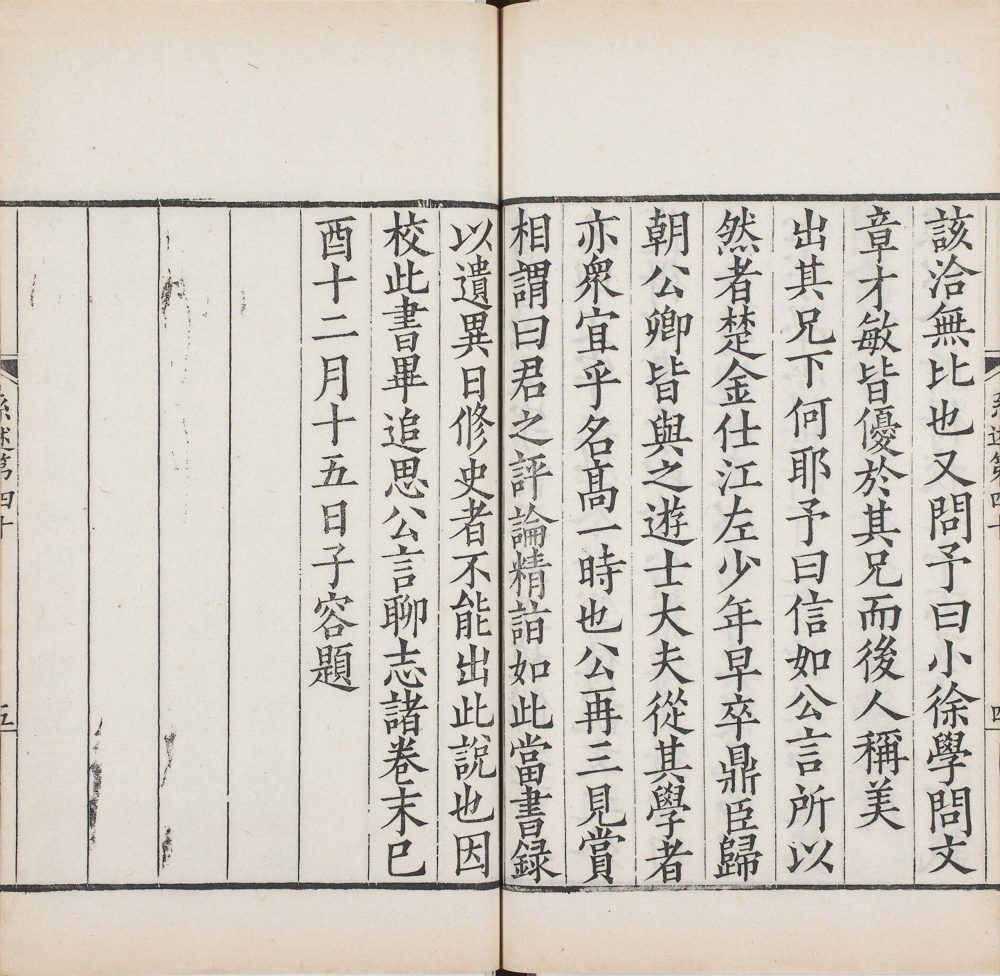 該洽無比也又問予曰小徐學問文
章才敏皆優於其兄而後人稱美
出其兄下何耶予曰信如公言所以
然者楚金仕江左少年早卒鼎臣歸
朝公卿皆與之遊士大夫從其學者
亦衆宜乎名髙一時也公再三見賞
相謂曰君之評論精詣如此當書録
以遺異日修史者不能出此說也因
校此書畢追思公言聊志諸卷末巳
酉十二月十五日子容題
系述第四十
四
系述第四十
五